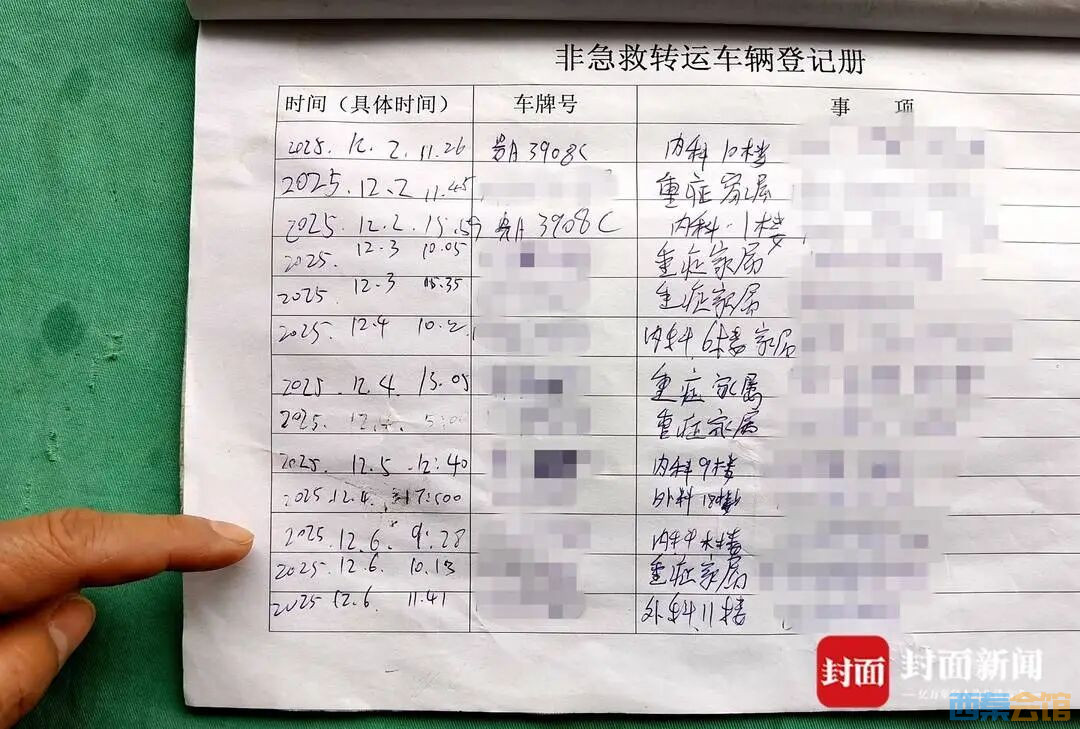 非急救转运车辆登记册
时间（具体时间） 车牌号 事 项
2025. 12. 2. 11.26 贵A 3908C 内科 10楼
2025.12.2 11.45 重症家属
2025. 12.2. 15.57 贵A 3908C 内科 1楼
2025. 12.3 10.05 重症家属
2025. 12.3 15.35 重症家属
2025. 12.4 10.21 内科 6楼 家属
2025. 12.4. 13.05 重症家属
2025. 重症家属
2025. 12.5 12:40 内科9楼
2025.12.4. 外科 18楼
2025.12.6. 9:28 内科 楼
2025.12.6. 10.13 重症家属
2025 12.6. 11.41 外科 11楼
封面 封面新闻
西集会馆